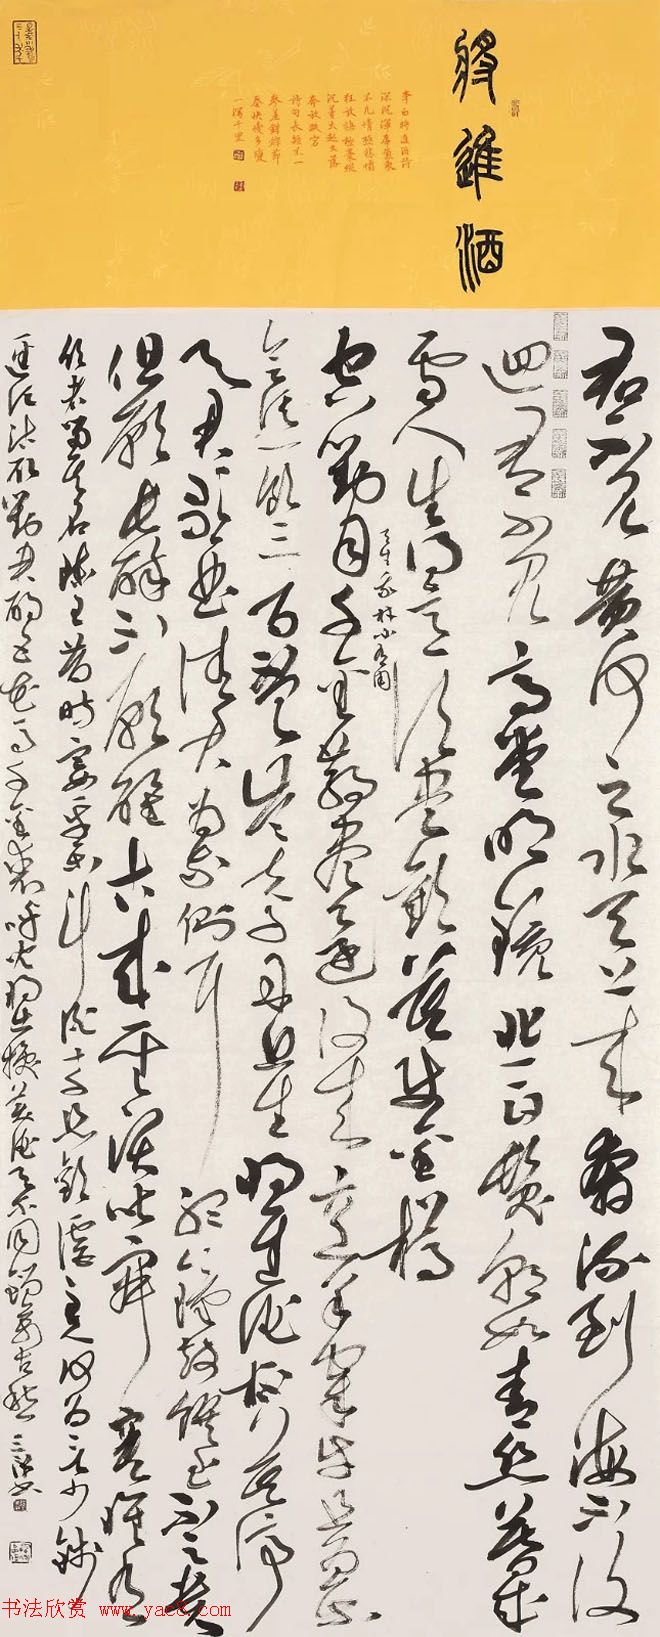 將進酒
李白將進酒詩
深沉渾厚氣象
不凡情極悲憤
狂放語極豪縱
沉著大起大落
奔放跌宕
詩句長短不一
參差錯綜節
奏快慢多變
一瀉千里
君不見黃河之水天上來奔流到海不復
迴君不見高堂明鏡悲白髮朝如青絲暮成
雪人生得意須盡歡莫使金樽
天生我材必有用
空對月千金散盡還復來烹羊宰牛且為樂
會須一飲三百杯岑夫子丹丘生將進酒杯莫停
與君歌一曲請君為我側耳聽鐘鼓饌玉不足貴
但願長醉不願醒古來聖賢皆寂寞惟有
飲者留其名陳王昔時宴平樂斗酒十千恣歡謔主人何為言少錢
逕須沽取對君酌五花馬千金裘呼兒將出換美酒與爾同銷萬古愁
书法欣赏 www.yac8.com